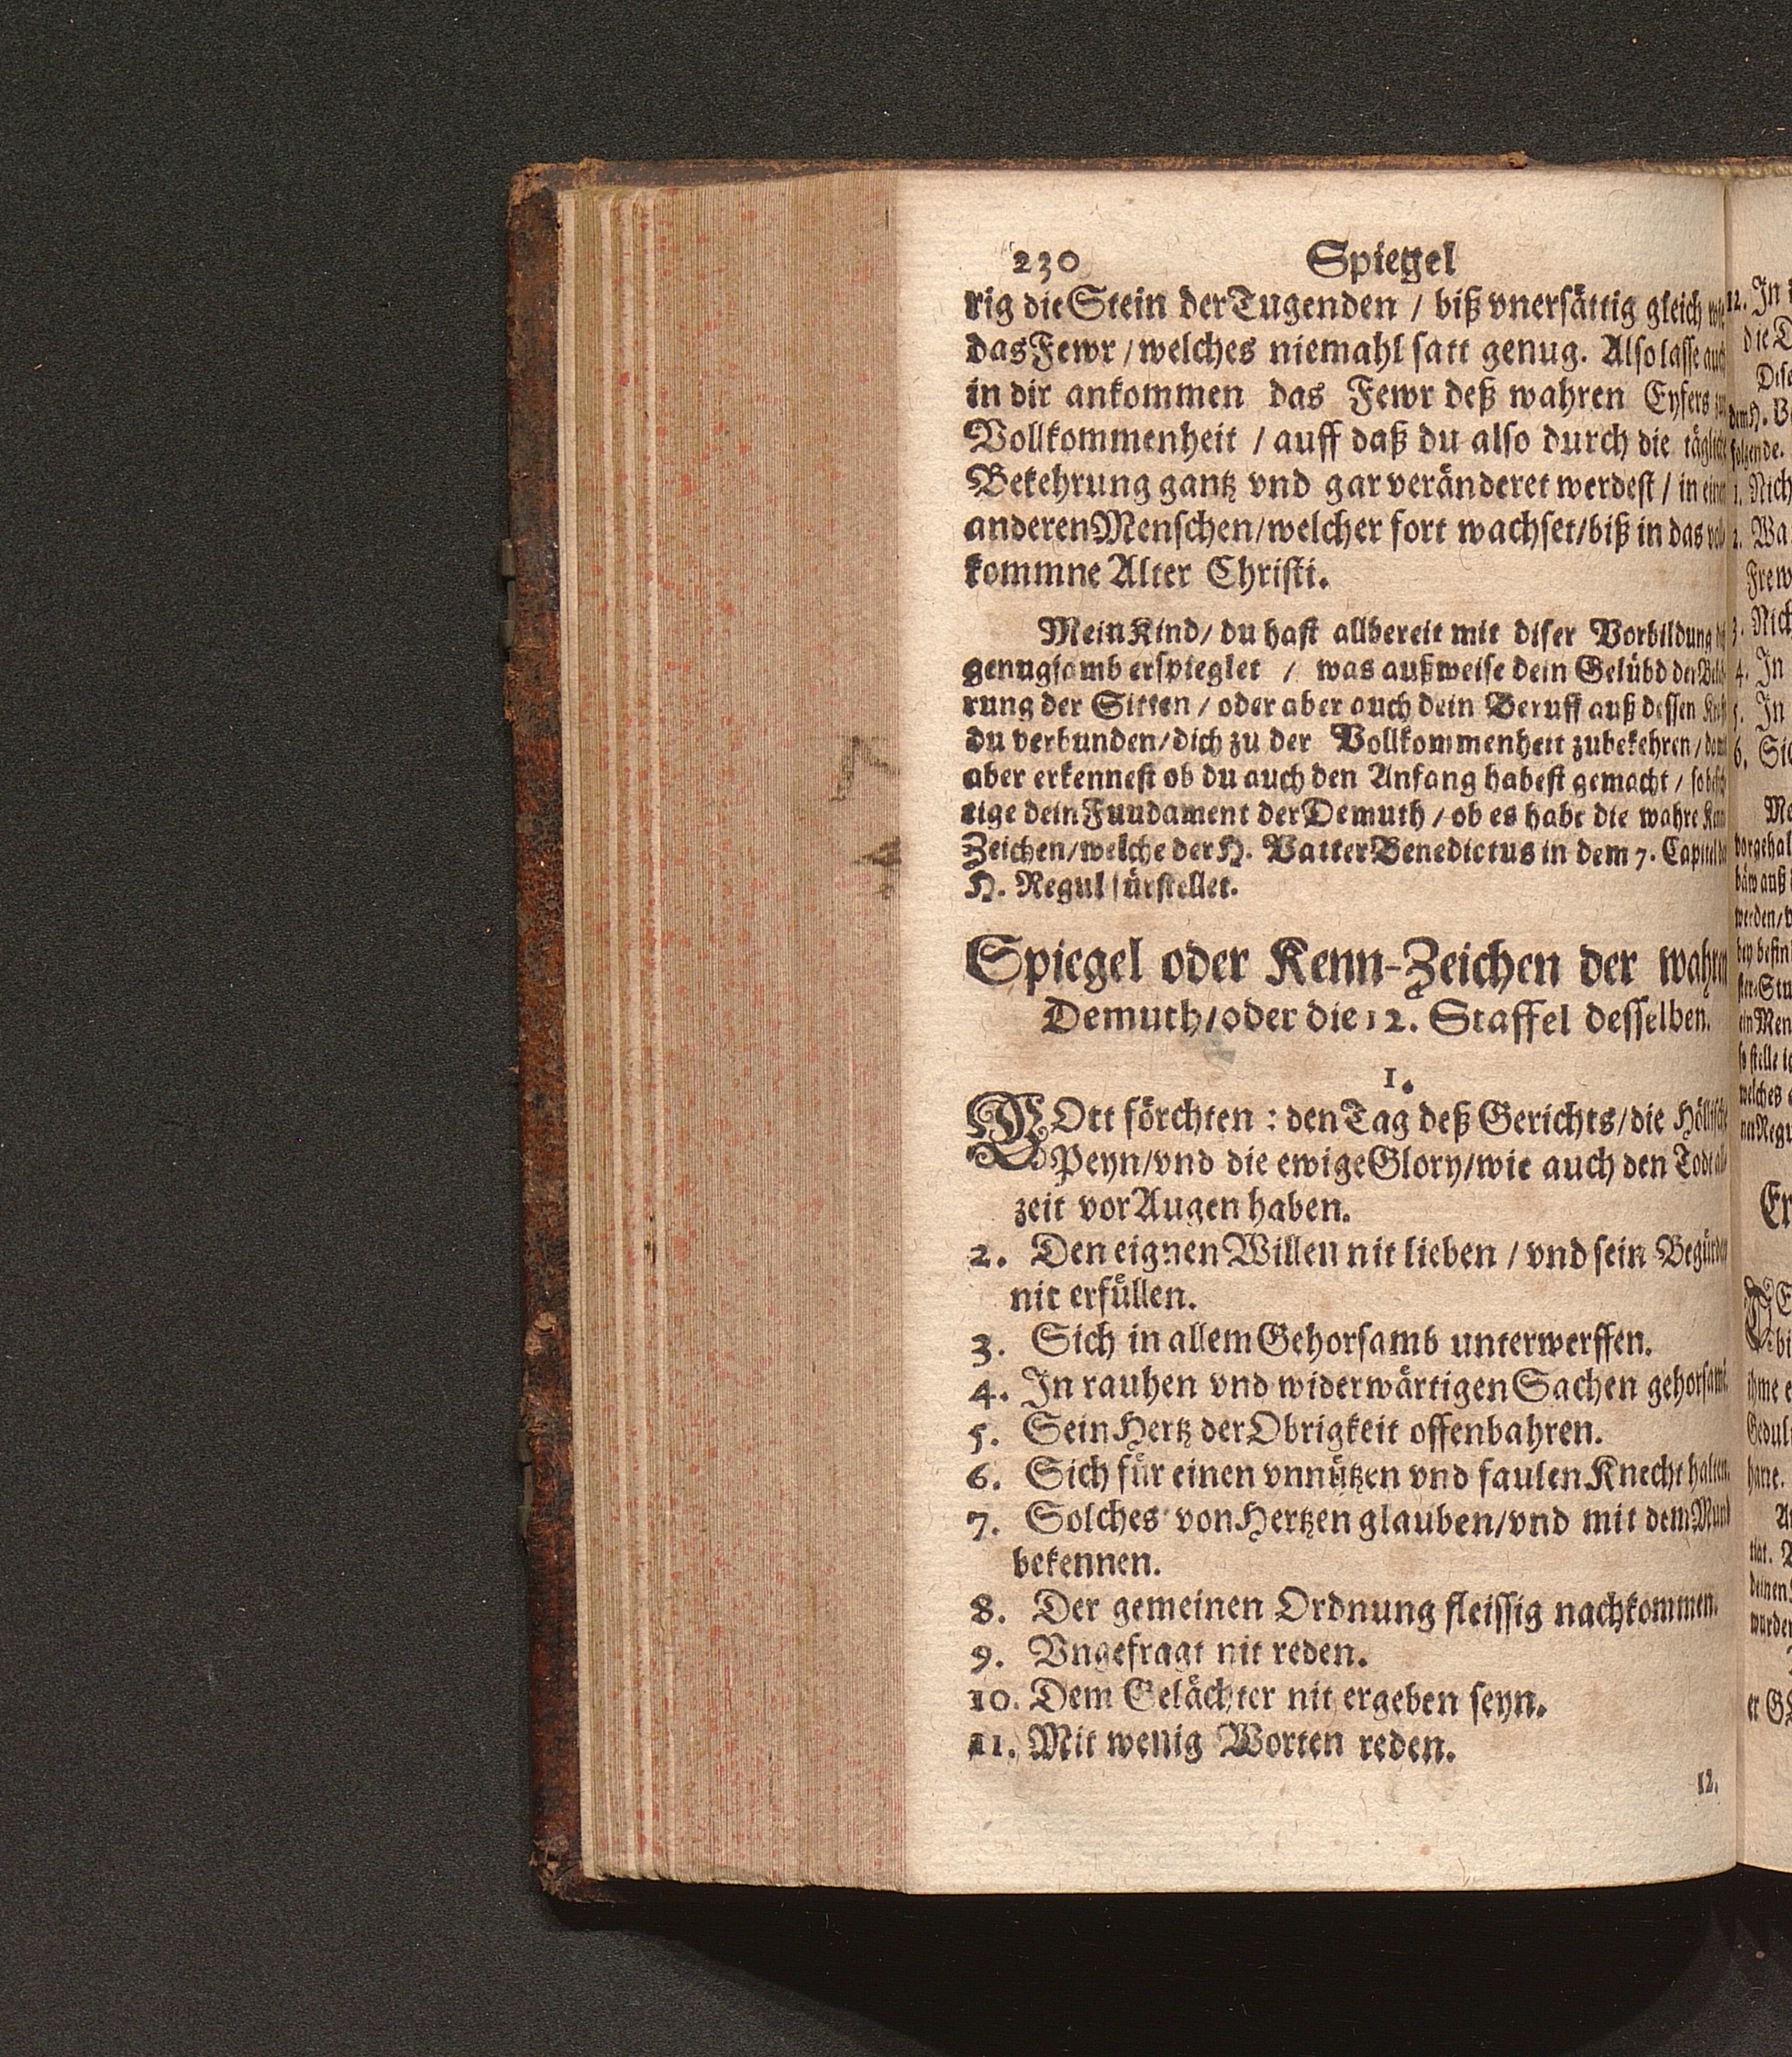 230 Spiegel
rig die Stein der Tugenden / biß vnersättig gleich wie
das Fewr / welches niemahl satt genug. Also lasse auch
in dir ankommen das Fewr deß wahren Eyfers zur
Vollkommenheit / auff daß du also durch die tägliche
Bekehrung gantz vnd gar veränderet werdest / in einen
anderen Menschen / welcher fort wachset / biß in das voll-
kommne Alter Christi.
Mein Kind / du hast allbereit mit diser Vorbildung
genugsamb erspieglet / was außweise dein Gelübd der Bekeh-
rung der Sitten / oder aber auch dein Beruff auß dessen Krafft
du verbunden / dich zu der Vollkommenheit zubekehren / damit
aber erkennest ob du auch den Anfang habest gemacht / so besich-
tige dein Fuudament der Demuth / ob es habe die wahre Kenn-
Zeichen / welche der H. Vatter Benedictus in dem 7. Capitel der
H. Regul fürstellet.
Spiegel oder Kenn-Zeichen der wahren
Demuth / oder die 12. Staffel desselben.
1.
GOtt förchten : den Tag deß Gerichts / die Höllische
Peyn / vnd die ewige Glory / wie auch den Todt all-
zeit vor Augen haben.
2. Den eignen Willen nit lieben / vnd sein Begürden
nit erfüllen.
3. Sich in allem Gehorsamb unterwerffen.
4. In rauhen vnd widerwärtigen Sachen gehorsamē.
5. Sein Hertz der Obrigkeit offenbahren.
6. Sich für einen vnnützen vnd faulen Knecht halten.
7. Solches von Hertzen glauben / vnd mit dem Mund
bekennen.
8. Der gemeinen Ordnung fleissig nachkommen.
9. Vngefragt nit reden.
10. Dem Gelächter nit ergeben seyn.
11. Mit wenig Worten reden.
12.